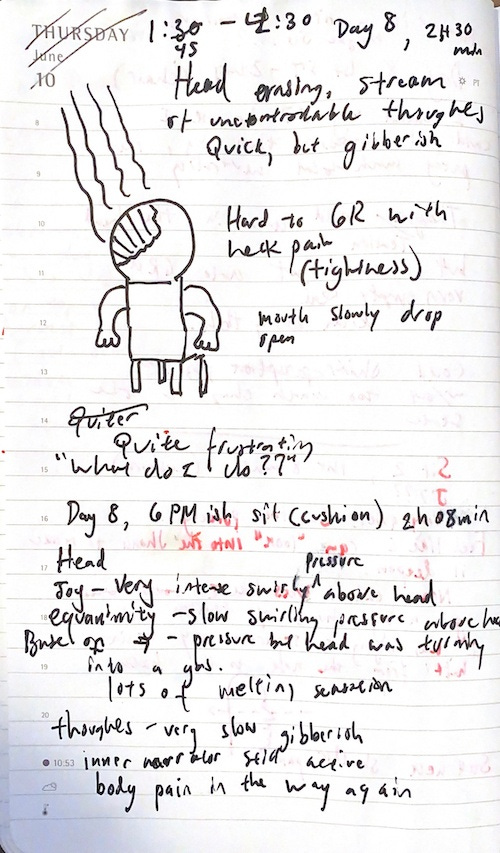 THURSDAY
June
10
1:30 - 4:30 Day 8, 2H30
45 min
Head erasing, stream
of uncontrolable thoughts
Quick, but gibberish
Hard to GR with
neck pain
(tightness)
mouth slowly drop
open
Quiter
Quite frustrating
"What do I do??"
Day 8, 6PM ish sit (cushion) 2h08min
Head
Joy - very intense swirly ^pressure above head
equanimity - slow swirling pressure above hea
Base of - pressure but head was turning
into a gas.
lots of melting sensation
thoughts - very slow gibberish
inner narrator still active
body pain in the way again
8
9
10
11
12
13
14
15
16
17
18
19
20
10:53